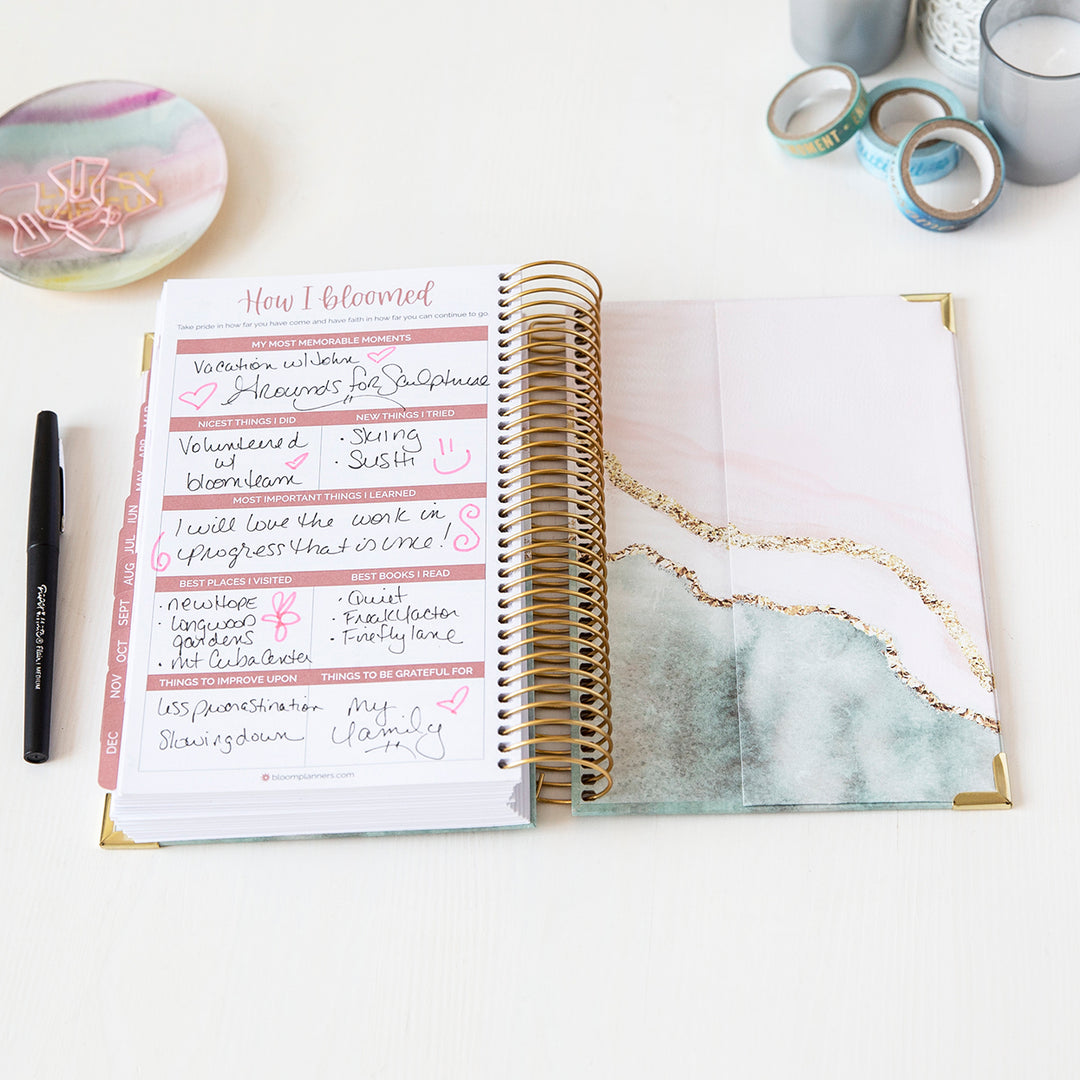 How I bloomed
Take pride in how far you have come and have faith in how far you can continue to go.
MY MOST MEMORABLE MOMENTS
Vacation w/ John
Grounds for Sculpture
NICEST THINGS I DID
Volunteered
w/
bloom team
NEW THINGS I TRIED
• Skiing
• Sushi
MOST IMPORTANT THINGS I LEARNED
I will love the work in
progress that is me!
BEST PLACES I VISITED
• new HOPE
• Longwood
gardens
• Mt Cuba Center
BEST BOOKS I READ
• Quiet
• Freaky factor
• Firefly lane
THINGS TO IMPROVE UPON
less procrastination
Slowing down
THINGS TO BE GRATEFUL FOR
My
family
bloomplanners.com
MAR
APR
MAY
JUN
JUL
AUG
SEPT
OCT
NOV
DEC
FLAIR MEDIUM
MOMENT